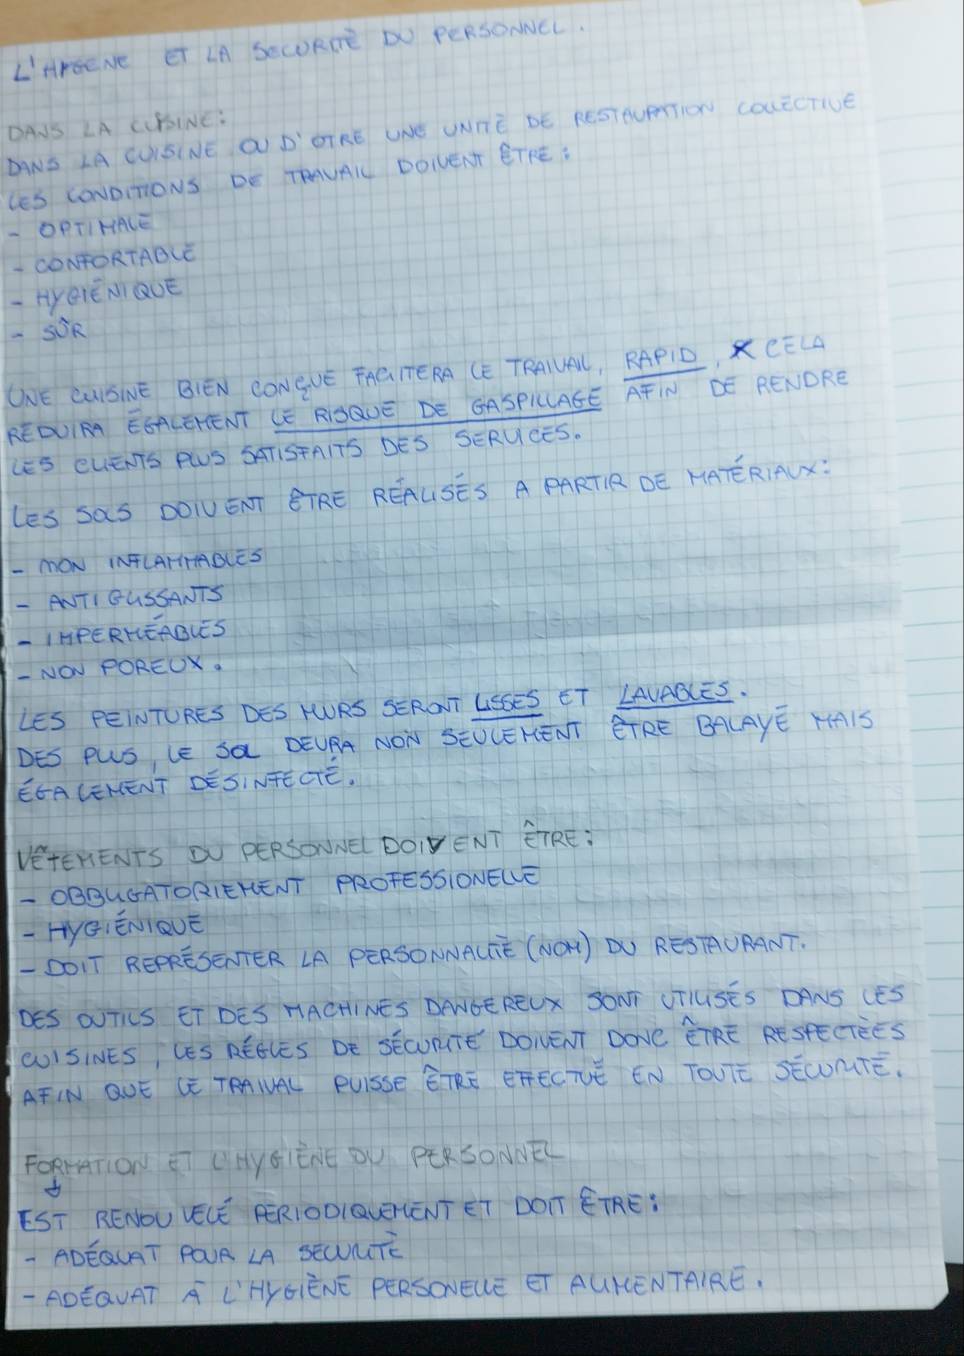 L'HYGENE ET LA SECURITÈ DU PERSONNEL.
DANS LA CUISINE:
DANS LA CUISINE OU D'OTRE UNE UNITÈ DE RESTAURATION COLLÉCTIVE
LES CONDITIONS DE TRAVAIL DOIVENT ÊTRE:
- OPTIMALE
- CONFORTABLE
- HYGIÉNIQUE
- SÛR
UNE CUISINE BIEN CONÇUE FACILITERA LE TRAIVAIL, RAPID, CELA
RÉDUIRA ÉGALEMENT LE RISQUE DE GASPILLAGE AFIN DE RENDRE
LES CLIENTS PLUS SATISFAITS DES SERVICES.
LES SOLS DOIVENT ÊTRE RÉALISÉS A PARTIR DE MATÉRIAUX:
- MON INFLAMMABLES
- ANTI GLISSANTS
- IMPERMÉABLES
- NON POREUX.
LES PEINTURES DES MURS SERONT LISSES ET LAVABLES.
DES PLUS, LE SOL DEVRA NON SEULEMENT ÊTRE BALAYÉ MAIS
ÉGALEMENT DÉSINFECTÉ.
VÊTEMENTS DU PERSONNEL DOIVENT ÊTRE:
- OBBLIGATORIEMENT PROFESSIONELLE
- HYGIÉNIQUE
- DOIT REPRÉSENTER LA PERSONNALITÈ (NOM) DU RESTAURANT.
DES OUTILS ET DES MACHINES DANGEREUX SONT UTILISÉS DANS LES
CUISINES, LES RÉGLES DE SÉCURITÉ DOIVENT DONC ÊTRE RESPECTÈES
AFIN QUE LE TRAIVAL PUISSE ÊTRE EFFECTUÉ EN TOUTE SÉCURITÉ.
FORMATION ET L'HYGIÈNE DU PERSONNEL
↓
EST RENOUVELÉ PÉRIODIQUEMENT ET DOIT ÊTRE:
- ADÉQUAT POUR LA SECURITÈ
- ADÉQUAT À L'HYGIÈNE PERSONELLE ET ALIMENTAIRE.